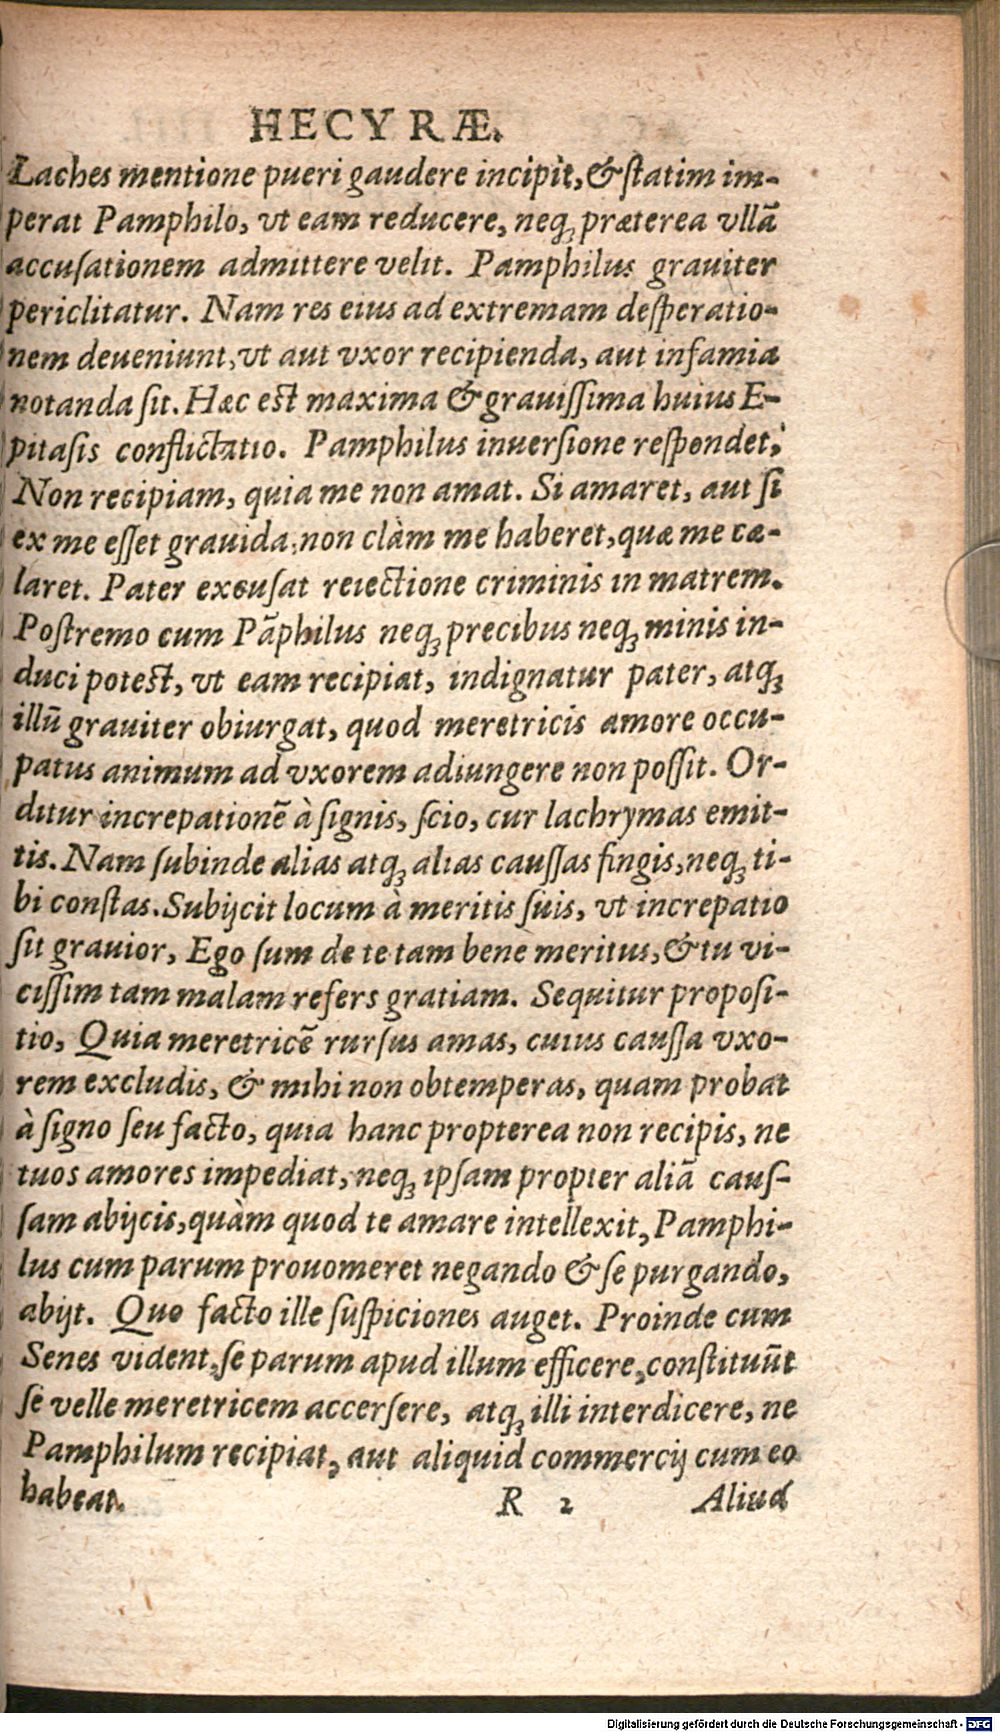 HECYRÆ.
Laches mentione pueri gaudere incipit, & ſtatim im-
perat Pamphilo, vt eam reducere, neqꝫ præterea vllā
accuſationem admittere velit. Pamphilus grauiter
periclitatur. Nam res eius ad extremam deſperatio-
nem deueniunt, vt aut vxor recipienda, aut infamia
notanda ſit. Hæc eſt maxima & grauiſſima huius E-
pitaſis conflictatio. Pamphilus inuerſione reſpondet,
Non recipiam, quia me non amat. Si amaret, aut ſi
ex me eſſet grauida, non clàm me haberet, quæ me cæ-
laret. Pater excuſat reiectione criminis in matrem.
Poſtremo cum Pāphilus neqꝫ precibus neqꝫ minis in-
duci poteſt, vt eam recipiat, indignatur pater, atqꝫ
illū grauiter obiurgat, quod meretricis amore occu-
patus animum ad vxorem adiungere non poſſit. Or-
ditur increpationē à ſignis, ſcio, cur lachrymas emit-
tis. Nam ſubinde alias atqꝫ alias cauſſas fingis, neqꝫ ti-
bi conſtas. Subijcit locum à meritis ſuis, vt increpatio
ſit grauior, Ego ſum de te tam bene meritus, & tu vi-
ciſſim tam malam refers gratiam. Sequitur propoſi-
tio, Quia meretricē rurſus amas, cuius cauſſa vxo-
rem excludis, & mihi non obtemperas, quam probat
à ſigno ſeu facto, quia hanc propterea non recipis, ne
tuos amores impediat, neqꝫ ipſam propter aliā cauſ-
ſam abijcis, quàm quod te amare intellexit, Pamphi-
lus cum parum prouomeret negando & ſe purgando,
abijt. Quo facto ille ſuſpiciones auget. Proinde cum
Senes vident, ſe parum apud illum efficere, conſtituūt
ſe velle meretricem accerſere, atqꝫ illi interdicere, ne
Pamphilum recipiat, aut aliquid commercij cum eo
habeat. R 2 Aliud
Digitalisierung gefördert durch die Deutsche Forschungsgemeinschaft - DFG